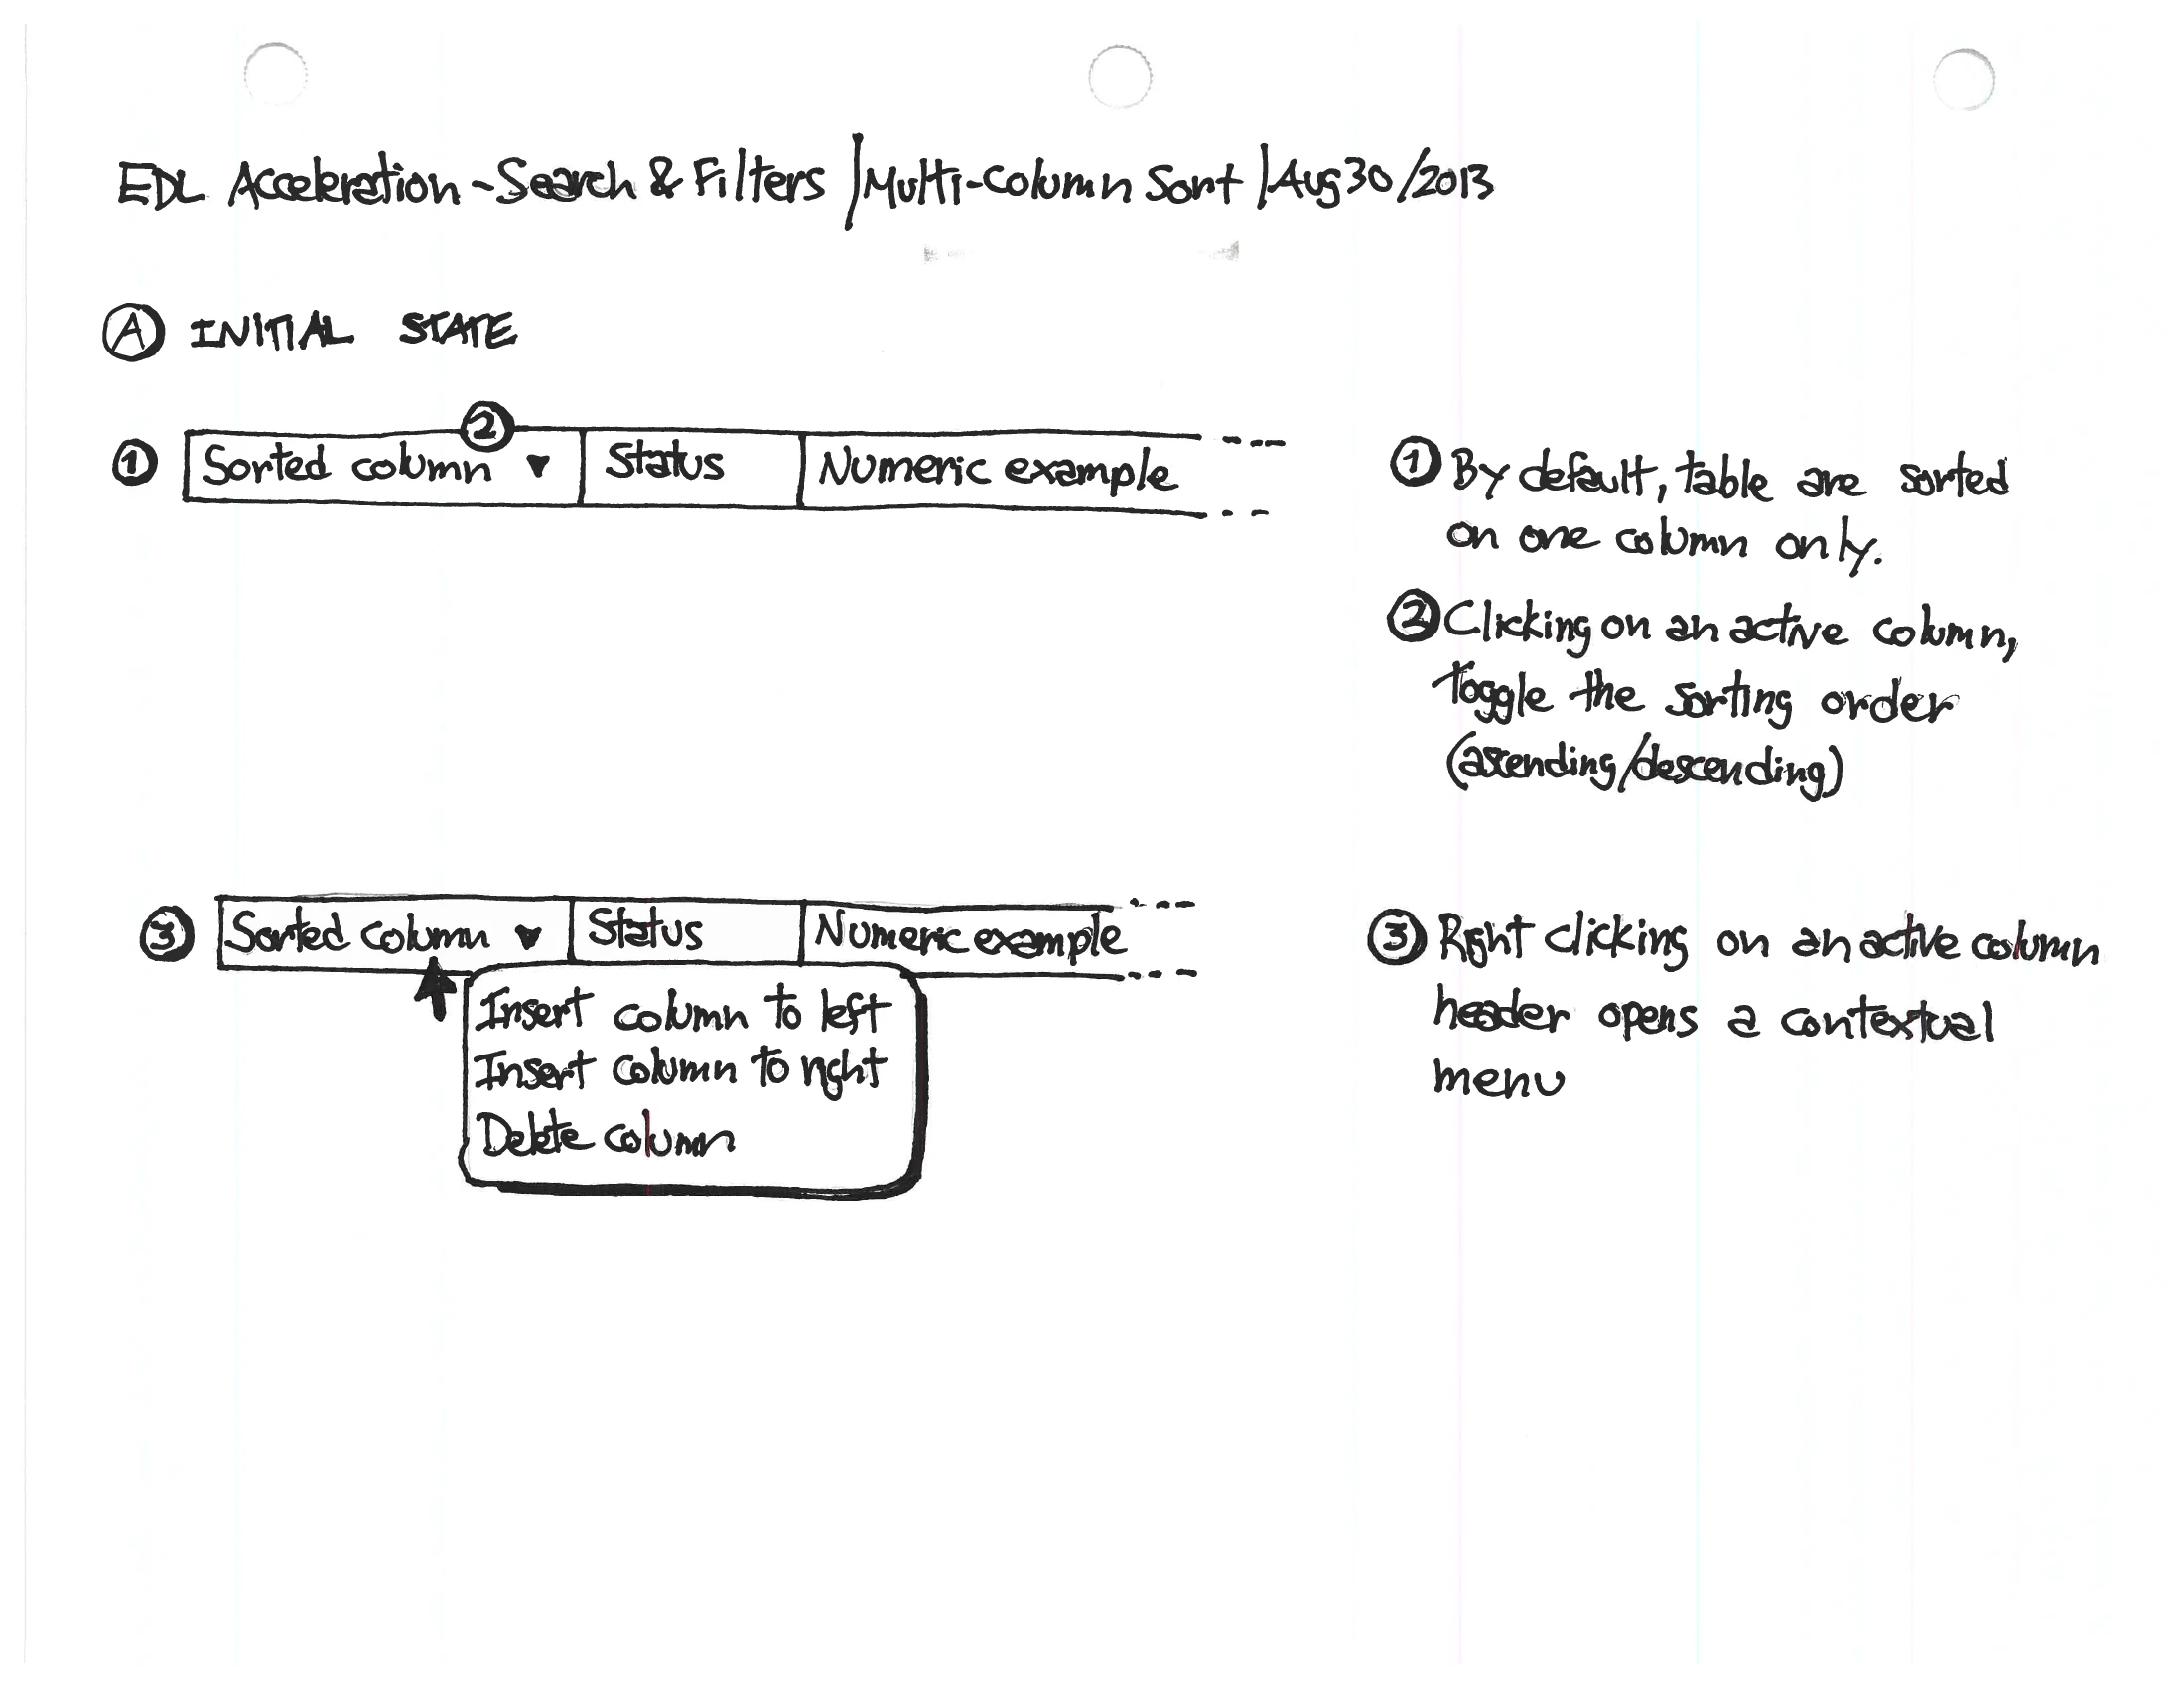 EDL Acceleration - Search & Filters | Multi-Column Sort | Aug 30/2013
A INITIAL STATE
2
1 Sorted column ▼ Status Numeric example
1 By default, table are sorted
on one column only.
2 Clicking on an active column,
toggle the sorting order
(ascending/descending)
3 Sorted column ▼ Status Numeric example
Insert column to left
Insert column to right
Delete column
3 Right clicking on an active column
header opens a contextual
menu